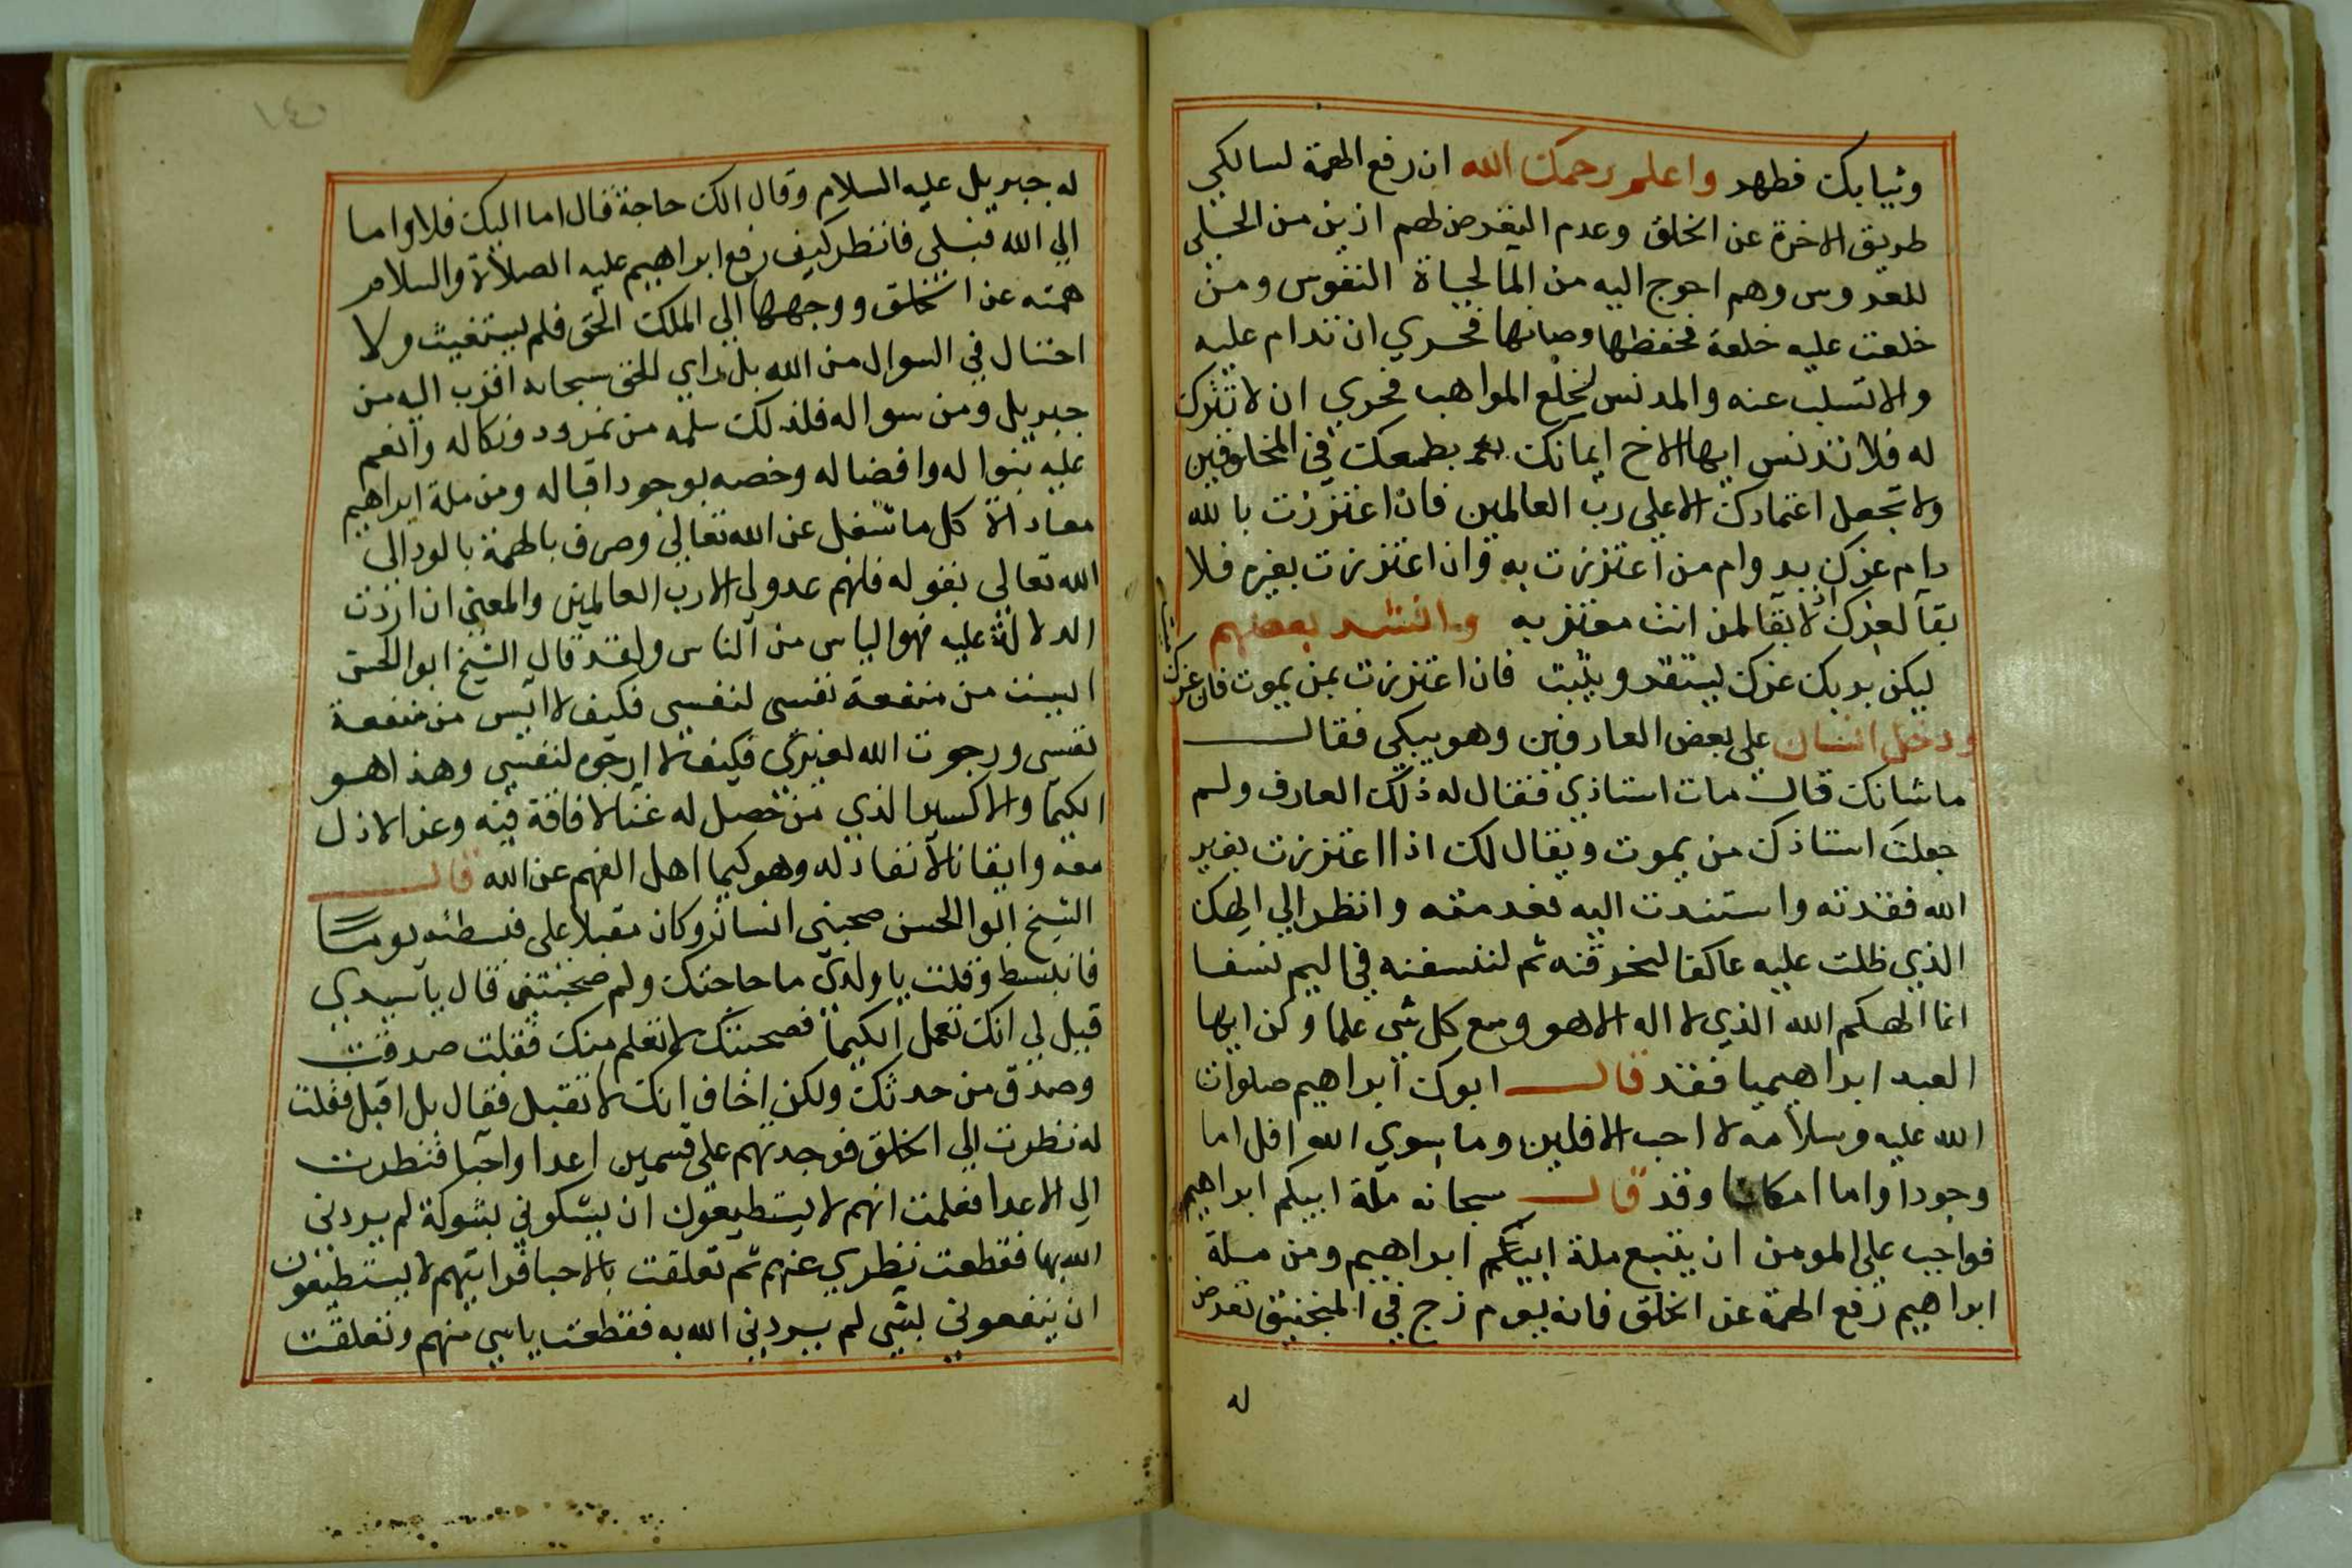 وثيابك فطهر واعلم رحمك الله ان رفع الهمة لسالكي
طريق الاخرة عن الخلق وعدم التعرض لهم ازين من الحلي
للعروس وهم احوج اليه من الما لحياة النفوس ومن
خلعت عليه خلعة فحفظها وصانها فحري ان تدام عليه
والاتسلب عنه والمدنس لخلع المواهب فحري ان لا تترك
له فلا تدنس ايها الاخ ايمانك بطمعك في المخلوقين
ولا تجعل اعتمادك الا على رب العالمين فان اعتززت بالله
دام عزك بدوام من اعتززت به وان اعتززت بغيره فلا
بقا لعزك اذ لا بقا لمن انت معتز به وانشد بعضهم
ليكن بربك عزك يستقر ويثبت فان اعتززت بمن يموت فان عزك ميت
ودخل انسان على بعض العارفين وهو يبكي فقال
ما شانك قال مات استاذي فقال له ذلك العارف ولم
جعلت استاذك من يموت ويقال لك اذا اعتززت بغير
الله فقدته واستندت اليه فعدمته وانظر الي الهك
الذي ظلت عليه عاكفا لنحرقنه ثم لننسفنه في اليم نسفا
انما الهكم الله الذي لا اله الا هو وسع كل شي علما وكن ايها
العبد ابراهيميا فقد قال ابوك ابراهيم صلوات
الله عليه وسلامه لا احب الافلين وما سوي الله افل اما
وجودا واما امكانا وقد قال سبحانه ملة ابيكم ابراهيم
فواجب على المومن ان يتبع ملة ابيكم ابراهيم ومن ملة
ابراهيم رفع الهمة عن الخلق فانه يوم زج في المنجنيق تعرض
له
له جبريل عليه السلام وقال الك حاجة قال اما اليك فلا واما
الي الله فبلى فانظر كيف رفع ابراهيم عليه الصلاة والسلام
همته عن الخلق ووجهها الي الملك الحق فلم يستغيث ولا
احتال في السوال من الله بل راي الحق سبحانه اقرب اليه من
جبريل ومن سواله فلذلك سلمه من نمرود ونكاله وانعم
عليه بنواله وافضاله وخصه بوجود اقباله ومن ملة ابراهيم
معاداة كل ما شغل عن الله تعالي وصرف بالهمة بالود الى
الله تعالى بقوله فانهم عدو لي الا رب العالمين والمعنى ان اردت
الدلالة عليه فهو الياس من الناس ولقد قال الشيخ ابو الحسن
ايست من منفعة نفسي لنفسي فكيف لا ايس من منفعة
نفسي ورجوت الله لغيري فكيف لا ارجوه لنفسي وهذا هو
الكيما والاكسير الذي من حصل له غنا لا فاقة فيه وعز لا ذل
معه وانفاقا لا نفاد له وهو كيما اهل الفهم عن الله قال
الشيخ ابو الحسن صحبني انسان وكان مقبلا على فبسطته يوما
فانبسط وقلت يا ولدي ما حاجتك ولم صحبتني قال يا سيدي
قيل لي انك تعمل الكيما فصحبتك لاتعلم منك فقلت صدقت
وصدق من حدثك ولكن اخاف انك لا تقبل فقال بل اقبل فقلت
له نظرت الي الخلق فوجدتهم على قسمين اعدا واحبا فنظرت
الى الاعدا فعلمت انهم لا يستطيعون ان يشكوني بشوكة لم يردني
الله بها فقطعت نظري عنهم ثم تعلقت بالاحبا فرايتهم لا يستطيعون
ان ينفعوني بشي لم يردني الله به فقطعت ياسي منهم وتعلقت